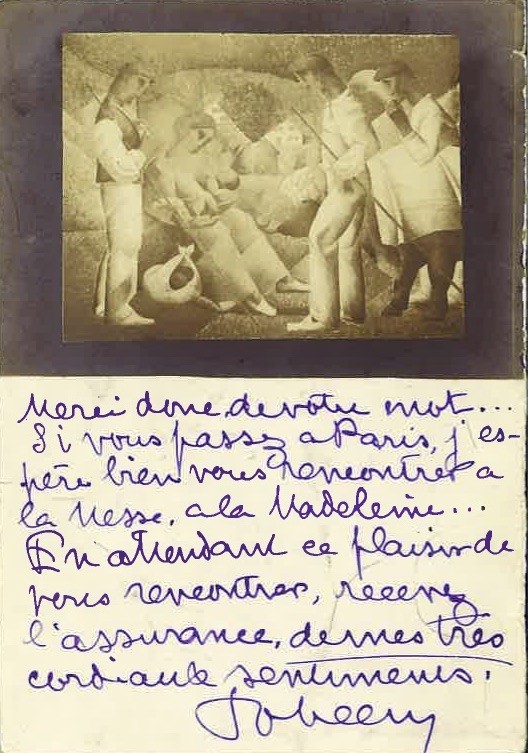 Merci donc, de votre mot...
Si vous passez a Paris, j'es-
père bien vous rencontrer a
la Messe, a la Madeleine...
En attendant ce plaisir de
vous rencontrer, recevez
l'assurance, de mes très
cordiaux sentiments.